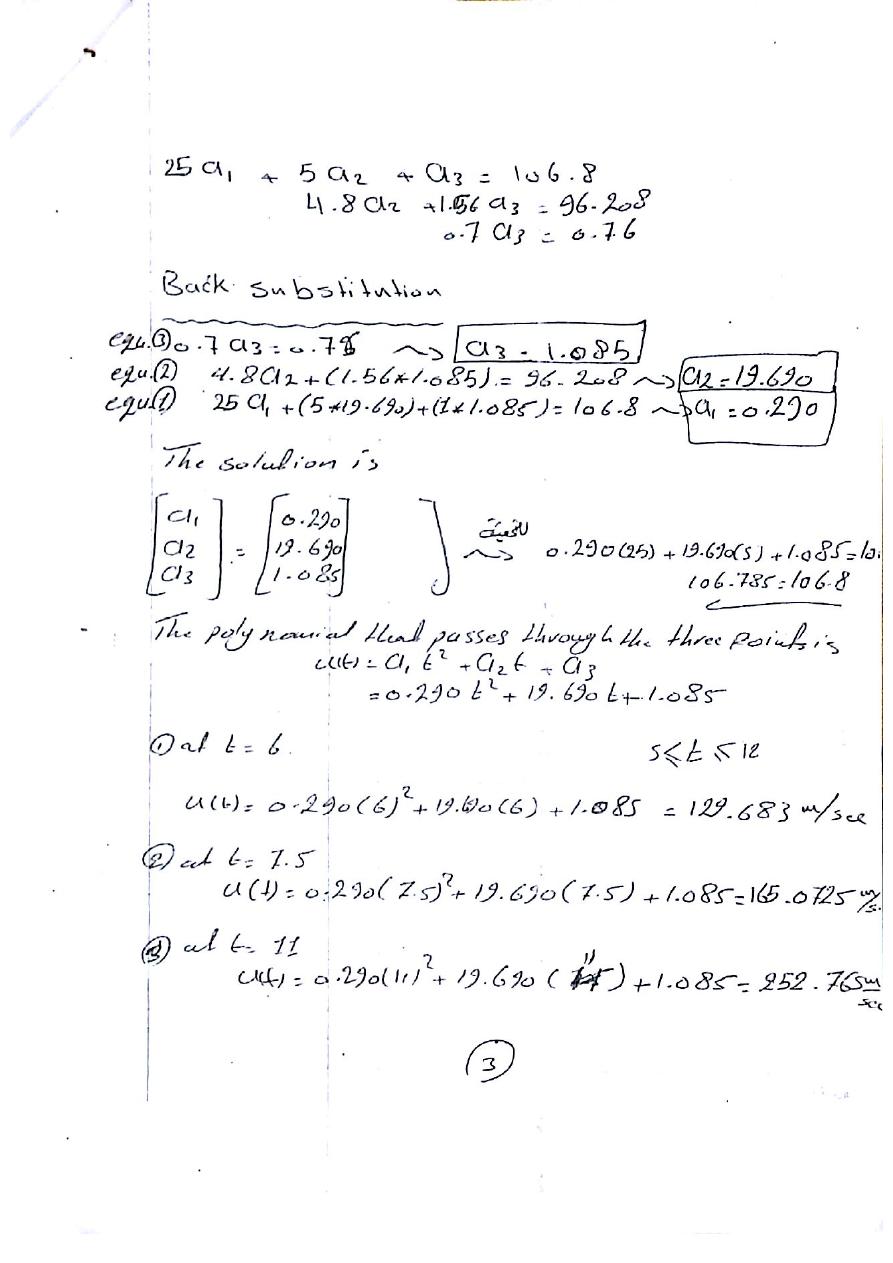 25 a₁ + 5 a₂ + a₃ = 106.8
4.8 a₂ + 1.56 a₃ = 96.208
0.7 a₃ = 0.76
Back substitution
equ.③ 0.7 a₃ = 0.76 ⇝ a₃ = 1.085
equ.(2) 4.8 a₂ + (1.56*1.085) = 96.208 ⇝ a₂ = 19.690
equ(1) 25 a₁ + (5*19.690) + (1*1.085) = 106.8 ⇝ a₁ = 0.290
The solution is
[a₁ a₂ a₃] = [0.290 19.690 1.085] ] ⇝ 0.290(25) + 19.690(5) + 1.085 = 10
106.785 = 106.8
The polynomial that passes through the three points is
u(t) = a₁ t² + a₂ t + a₃
= 0.290 t² + 19.690 t + 1.085
① at t = 6. 5 ≤ t ≤ 12
u(t) = 0.290(6)² + 19.690(6) + 1.085 = 129.683 m/sec
② at t = 7.5
u(t) = 0.290(7.5)² + 19.690(7.5) + 1.085 = 165.0725 m/s.
③ at t = 11
u(t) = 0.290(11)² + 19.690 (11) + 1.085 = 252.765 m/sec
3